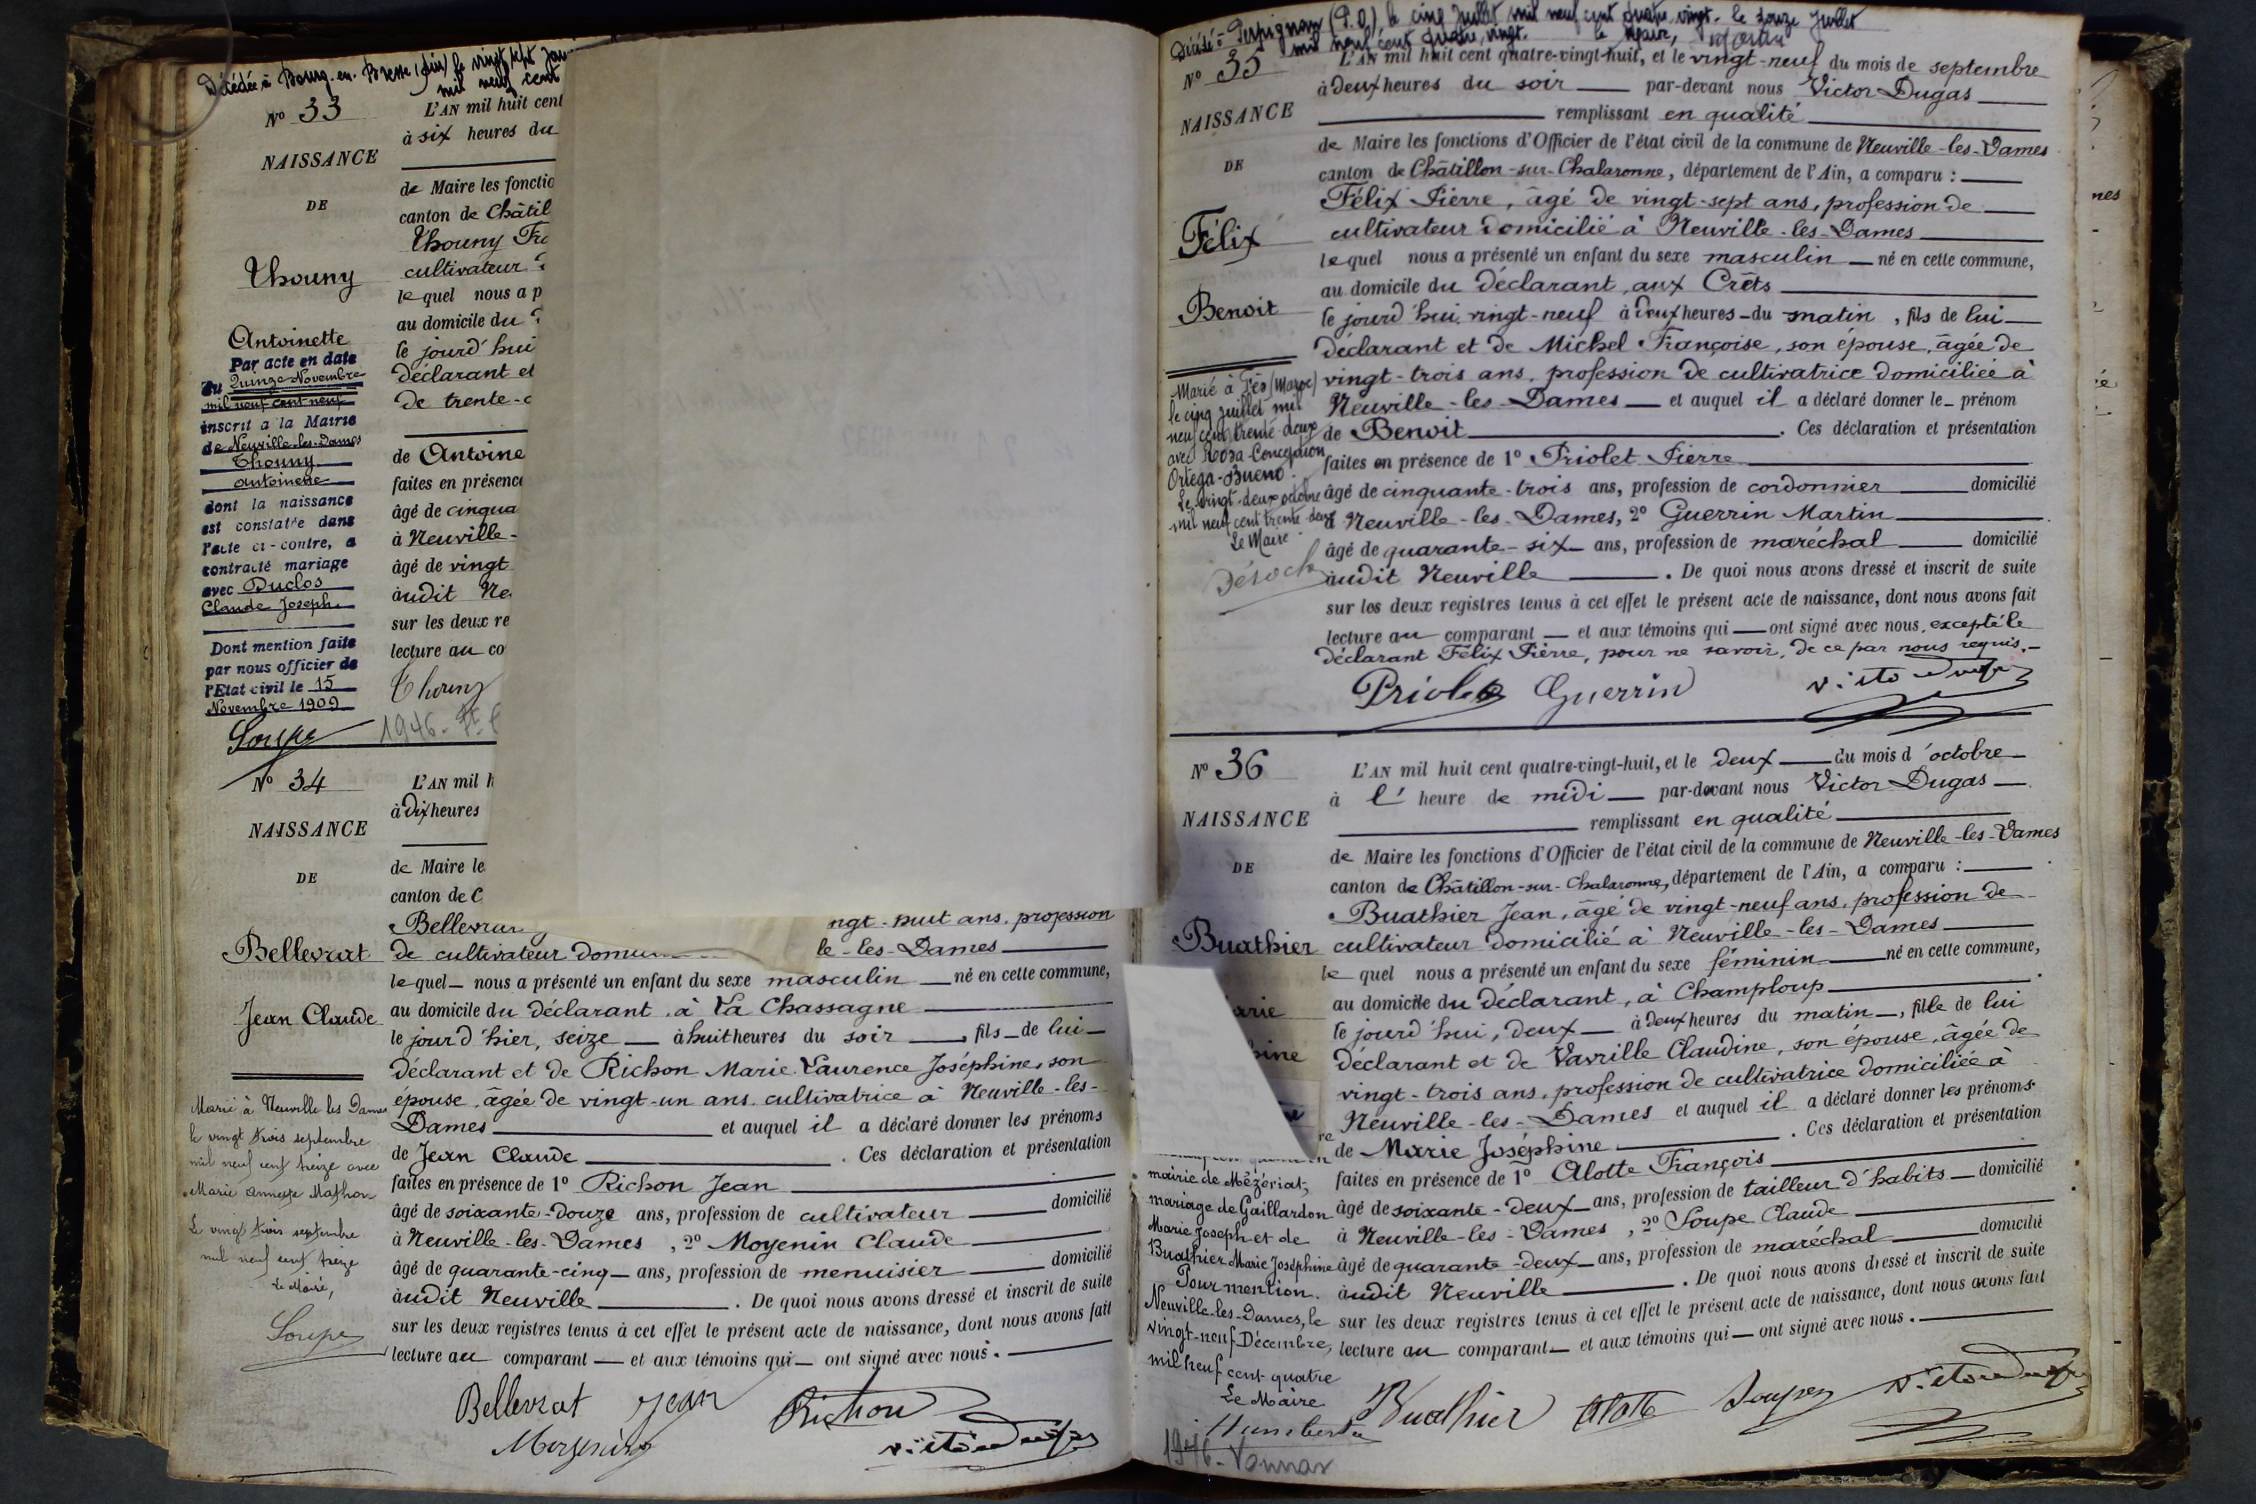 Décédée à Bourg-en-Bresse (Ain) le vingt sept
mil neuf cent
N° 33
NAISSANCE
DE
Thouny
Antoinette
Par acte en date
du Quinze Novembre
mil neuf cent neuf
inscrit à la Mairie
de Neuville-les-Dames
Thouny
Antoinette
dont la naissance
est constatée dans
l'acte ci-contre, a
contracté mariage
avec Duclos
Claude Joseph
Dont mention faite
par nous officier de
l'Etat civil le 15
Novembre 1909
Soupe
L'AN mil huit cent
à six heures du
de Maire les fonctio
canton de Châtil
Thouny Fra
cultivateur
lequel nous a p
au domicile du
le jourd'hui
déclarant et
de trente-
de Antoine
faites en présence
âgé de cinqua
à Neuville-
âgé de vingt
audit Ne
sur les deux re
lecture au co
Thouny
1946
N° 34
NAISSANCE
DE
Bellevrat
Jean Claude
Marié à Neuville les Dames
le vingt trois septembre
mil neuf cent treize avec
Marie Mathon
Le vingt trois septembre
mil neuf cent treize
Le Maire,
Soupe
L'AN mil h
à dix heures
de Maire le
canton de C
Bellevrat ngt-huit ans, profession
de cultivateur le-les-Dames
lequel nous a présenté un enfant du sexe masculin né en cette commune,
au domicile du déclarant, à La Chassagne
le jourd'hier, seize à huit heures du soir, fils de lui
déclarant et de Richon Marie Laurence Joséphine, son
épouse, âgée de vingt-un ans, cultivatrice à Neuville-les-
Dames et auquel il a déclaré donner les prénoms
de Jean Claude. Ces déclaration et présentation
faites en présence de 1° Richon Jean
âgé de soixante-douze ans, profession de cultivateur domicilié
à Neuville-les-Dames, 2° Moyenin Claude
âgé de quarante-cinq ans, profession de menuisier domicilié
audit Neuville. De quoi nous avons dressé et inscrit de suite
sur les deux registres tenus à cet effet le présent acte de naissance, dont nous avons fait
lecture au comparant et aux témoins qui ont signé avec nous.
Bellevrat Jean Richon
Moyenin
Décédé à Perpignan (P.O.) le cinq Juillet mil neuf cent quatre vingt. le douze Juillet
mil neuf cent quatre vingt. le Maire,
N° 35
NAISSANCE
DE
Félix
Benoit
Marié à Fès (Maroc)
le cinq juillet mil
neuf cent trente-deux
avec Rosa-Conception
Ortega-Bueno.
Le vingt-deux octobre
mil neuf cent trente-deux
Le Maire
L'AN mil huit cent quatre-vingt-huit, et le vingt-neuf du mois de septembre
à deux heures du soir par-devant nous Victor Dugas
remplissant en qualité
de Maire les fonctions d'Officier de l'état civil de la commune de Neuville-les-Dames
canton de Châtillon-sur-Chalaronne, département de l'Ain, a comparu :
Félix Pierre, âgé de vingt-sept ans, profession de
cultivateur domicilié à Neuville-les-Dames
lequel nous a présenté un enfant du sexe masculin né en cette commune,
au domicile du déclarant, aux Crêts
le jourd'hui, vingt-neuf à deux heures du matin, fils de lui
déclarant et de Michel Françoise, son épouse, âgée de
vingt-trois ans, profession de cultivatrice domiciliée à
Neuville-les-Dames et auquel il a déclaré donner le prénom
de Benoit. Ces déclaration et présentation
faites en présence de 1° Priolet Pierre
âgé de cinquante-trois ans, profession de cordonnier domicilié
à Neuville-les-Dames, 2° Guerrin Martin
âgé de quarante-six ans, profession de maréchal domicilié
audit Neuville. De quoi nous avons dressé et inscrit de suite
sur les deux registres tenus à cet effet le présent acte de naissance, dont nous avons fait
lecture au comparant et aux témoins qui ont signé avec nous, excepté le
déclarant Félix Pierre, pour ne savoir, de ce par nous requis.
Priolet Guerrin
N° 36
NAISSANCE
DE
Buathier
arie
hine
mairie de Mézériat,
mariage de Gaillardon
Marie Joseph et de
Buathier Marie Joséphine
Pour mention.
Neuville-les-Dames, le
vingt-neuf Décembre,
mil neuf cent quatre
Le Maire
1946-Vonnas
L'AN mil huit cent quatre-vingt-huit, et le deux du mois d'octobre
à l'heure de midi par-devant nous Victor Dugas
remplissant en qualité
de Maire les fonctions d'Officier de l'état civil de la commune de Neuville-les-Dames
canton de Châtillon-sur-Chalaronne, département de l'Ain, a comparu :
Buathier Jean, âgé de vingt-neuf ans, profession de
cultivateur domicilié à Neuville-les-Dames
lequel nous a présenté un enfant du sexe féminin né en cette commune,
au domicile du déclarant, à Champloup
le jourd'hui, deux à deux heures du matin, fille de lui
déclarant et de Vavrille Claudine, son épouse, âgée de
vingt-trois ans, profession de cultivatrice domiciliée à
Neuville-les-Dames et auquel il a déclaré donner les prénoms
de Marie Joséphine. Ces déclaration et présentation
faites en présence de 1° Alotte François
âgé de soixante-deux ans, profession de tailleur d'habits domicilié
à Neuville-les-Dames, 2° Soupe Claude
âgé de quarante-deux ans, profession de maréchal domicilié
audit Neuville. De quoi nous avons dressé et inscrit de suite
sur les deux registres tenus à cet effet le présent acte de naissance, dont nous avons fait
lecture au comparant et aux témoins qui ont signé avec nous.
Buathier Alotte Soupe